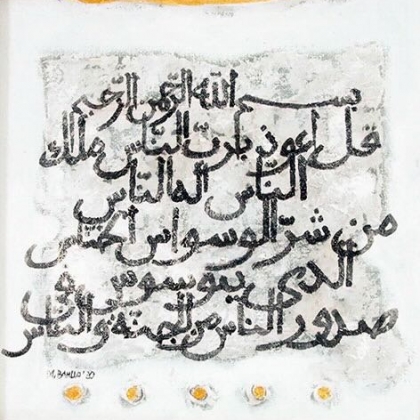 بسم الله الرّحمن الرّحيم
قل اعوذ بربّ النّاس ملك
النّاس اله النّاس
من شرّ الوسواس الخنّاس
الذي يوسوس في
صدور الناس من الجنّة والنّاس